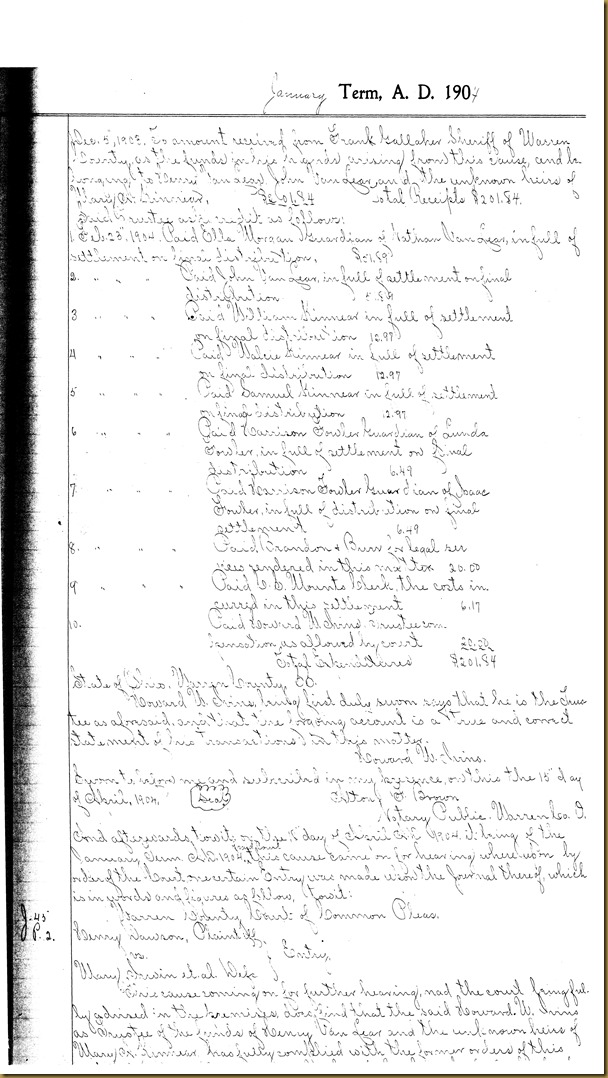 January Term, A. D. 1904
Dec. 5, 1903. To amount received from Frank Gallaher Sheriff of Warren
County, as the funds in his hands arising from this cause, and be
longing to Henry Van Lear, John Van Lear, and the unknown heirs of
Mary A. Kinnear, $201.84 Total Receipts $201.84.
Said Trustee asks credit as follows:
1 Feb. 23" 1904. Paid Ella Morgan Guardian of Nathan Van Lear, in full of
settlement on final distribution,
2. " " " Paid John Van Lear, in full of settlement on final
distribution
3 " " " Paid William Kinnear in full of settlement
on final distribution 12.97
4 " " " Paid Kinnear in full of settlement
on final distribution 12.97
5 " " " Paid Samuel Kinnear in full of settlement
on final distribution 12.97
6 " " " Paid Harrison Fowler Guardian of
Fowler, in full of settlement on final
distribution 6.49
7. " " " Paid Harrison Fowler Guardian of Isaac
Fowler, in full of distribution on final
settlement 6.49
8. " " " Paid Brandon & Burr for legal ser
vices rendered in this matter 20.00
9 " " " Paid Mounts Clerk, the costs in
curred in this settlement 6.17
10. Paid Howard W. Ivins, Trustee com
pensation, as allowed by court
Total Expenditures $201.84
State of Ohio, Warren County, SS.
Howard W. Ivins, being first duly sworn says that he is the Trus
tee as aforesaid, and that the forgoing account is a true and correct
statement of his transactions in this matter.
Howard W. Ivins.
Sworn to before me and subscribed in my presence, on this the 15" day
of April, 1904. Seal F. Brown
Notary Public Warren Co. O.
And afterwards, towit: on the day of April A.D. 1904. it being of the
January Term A.D. 1904, this cause came on for hearing whereupon by
order of the Court a certain Entry was made upon the Journal thereof, which
is in words and figures as follow, towit:
J-45
P. 2.
Warren County Court of Common Pleas.
Henry Dawson, Plaintiff,
vs. Entry,
Mary Irwin et al. Defs
This cause coming on for further hearing, and the court being ful-
ly advised in the premises, does find that the said Howard. W. Ivins
as Trustee of the funds of Henry Van Lear and the unknown heirs of
Mary A. Kinnear has fully complied with the former orders of this